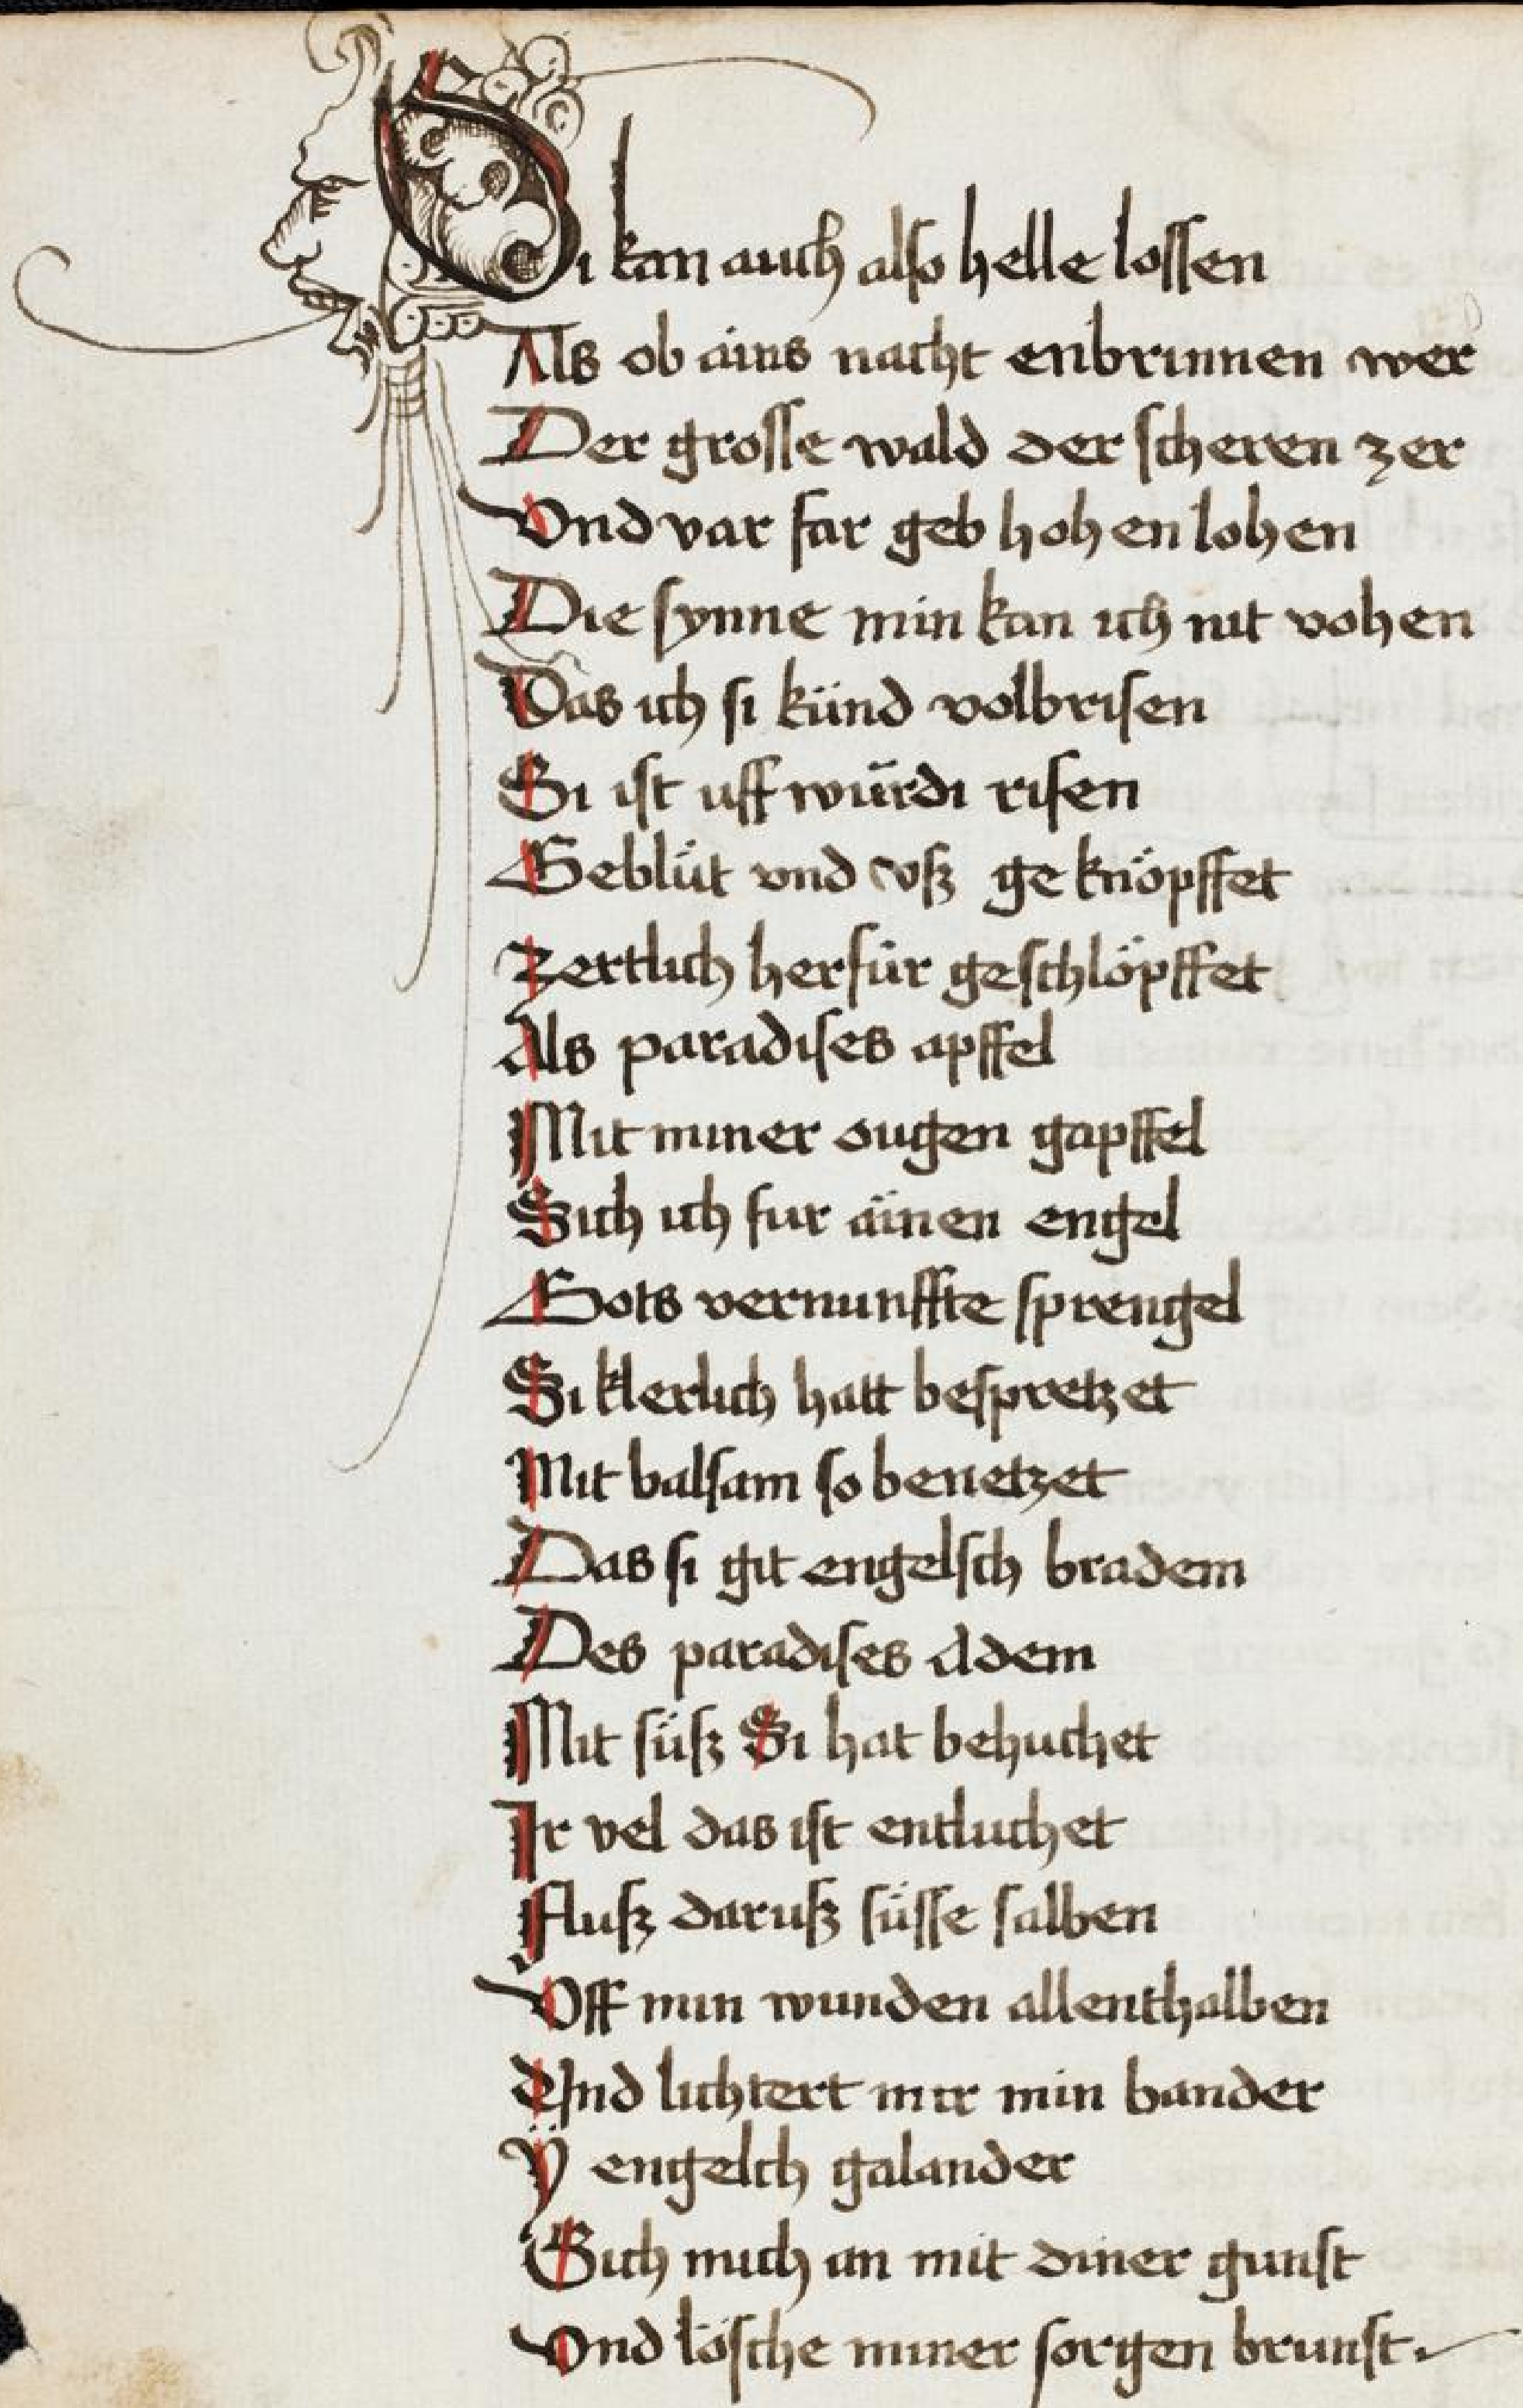 Si kan auch also helle lossen
Als ob ains nacht enbrinnen wer
Der grosse wald der scheren zer
Vnd var far geb hohen lohen
Die synne min kan ich nit vohen
Das ich si künd volbrisen
Si ist uff würdi risen
Geblüt vnd vsz geknöpffet
Zertlich herfür geschlöpffet
Als paradises apffel
Mit miner ougen gapffel
Sich ich fur äinen engel
Gots vernunffte sprengel
Si klerlich hatt bespretzet
Mit balsam so benetzet
Das si git engelsch bradem
Des paradises Adem
Mit süsz Si hat behuchet
Ir vel das ist entluchet
Flusz darusz süsse salben
Vff min wunden allenthalben
Vnd lichtert mir min bander
Ÿ engelch galander
Sich mich an mit diner gunst
Vnd lösche miner sorgen brunst